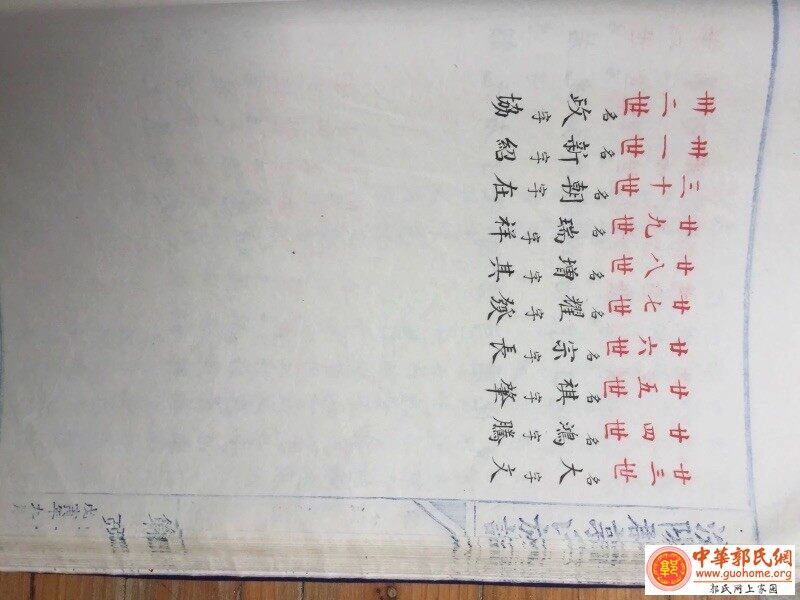 廿三世名大字文
廿四世名鴻字騰
廿五世名祺字肇
廿六世名宗字長
廿七世名耀字發
廿八世名增字其
廿九世名瑞字祥
三十世名朝字在
卅一世名新字紹
卅二世名政字協
汾陽
族譜
中華郭氏網
www.guohome.org
郭氏网上家园